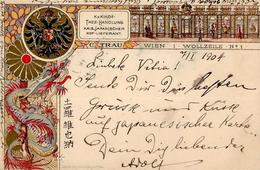 K.u.K. HOF-
THEE-HANDLUNG
KAIS. JAPANISCHER
HOF-LIEFERANT.
C. TRAU WIEN I. WOLLZEILE Nº 1
II 1904
Liebste
Sende Dir die
Grüsse und Küsse
auf japanesischer Karte
Dein Dich liebender
Adolf
土羅 維也納